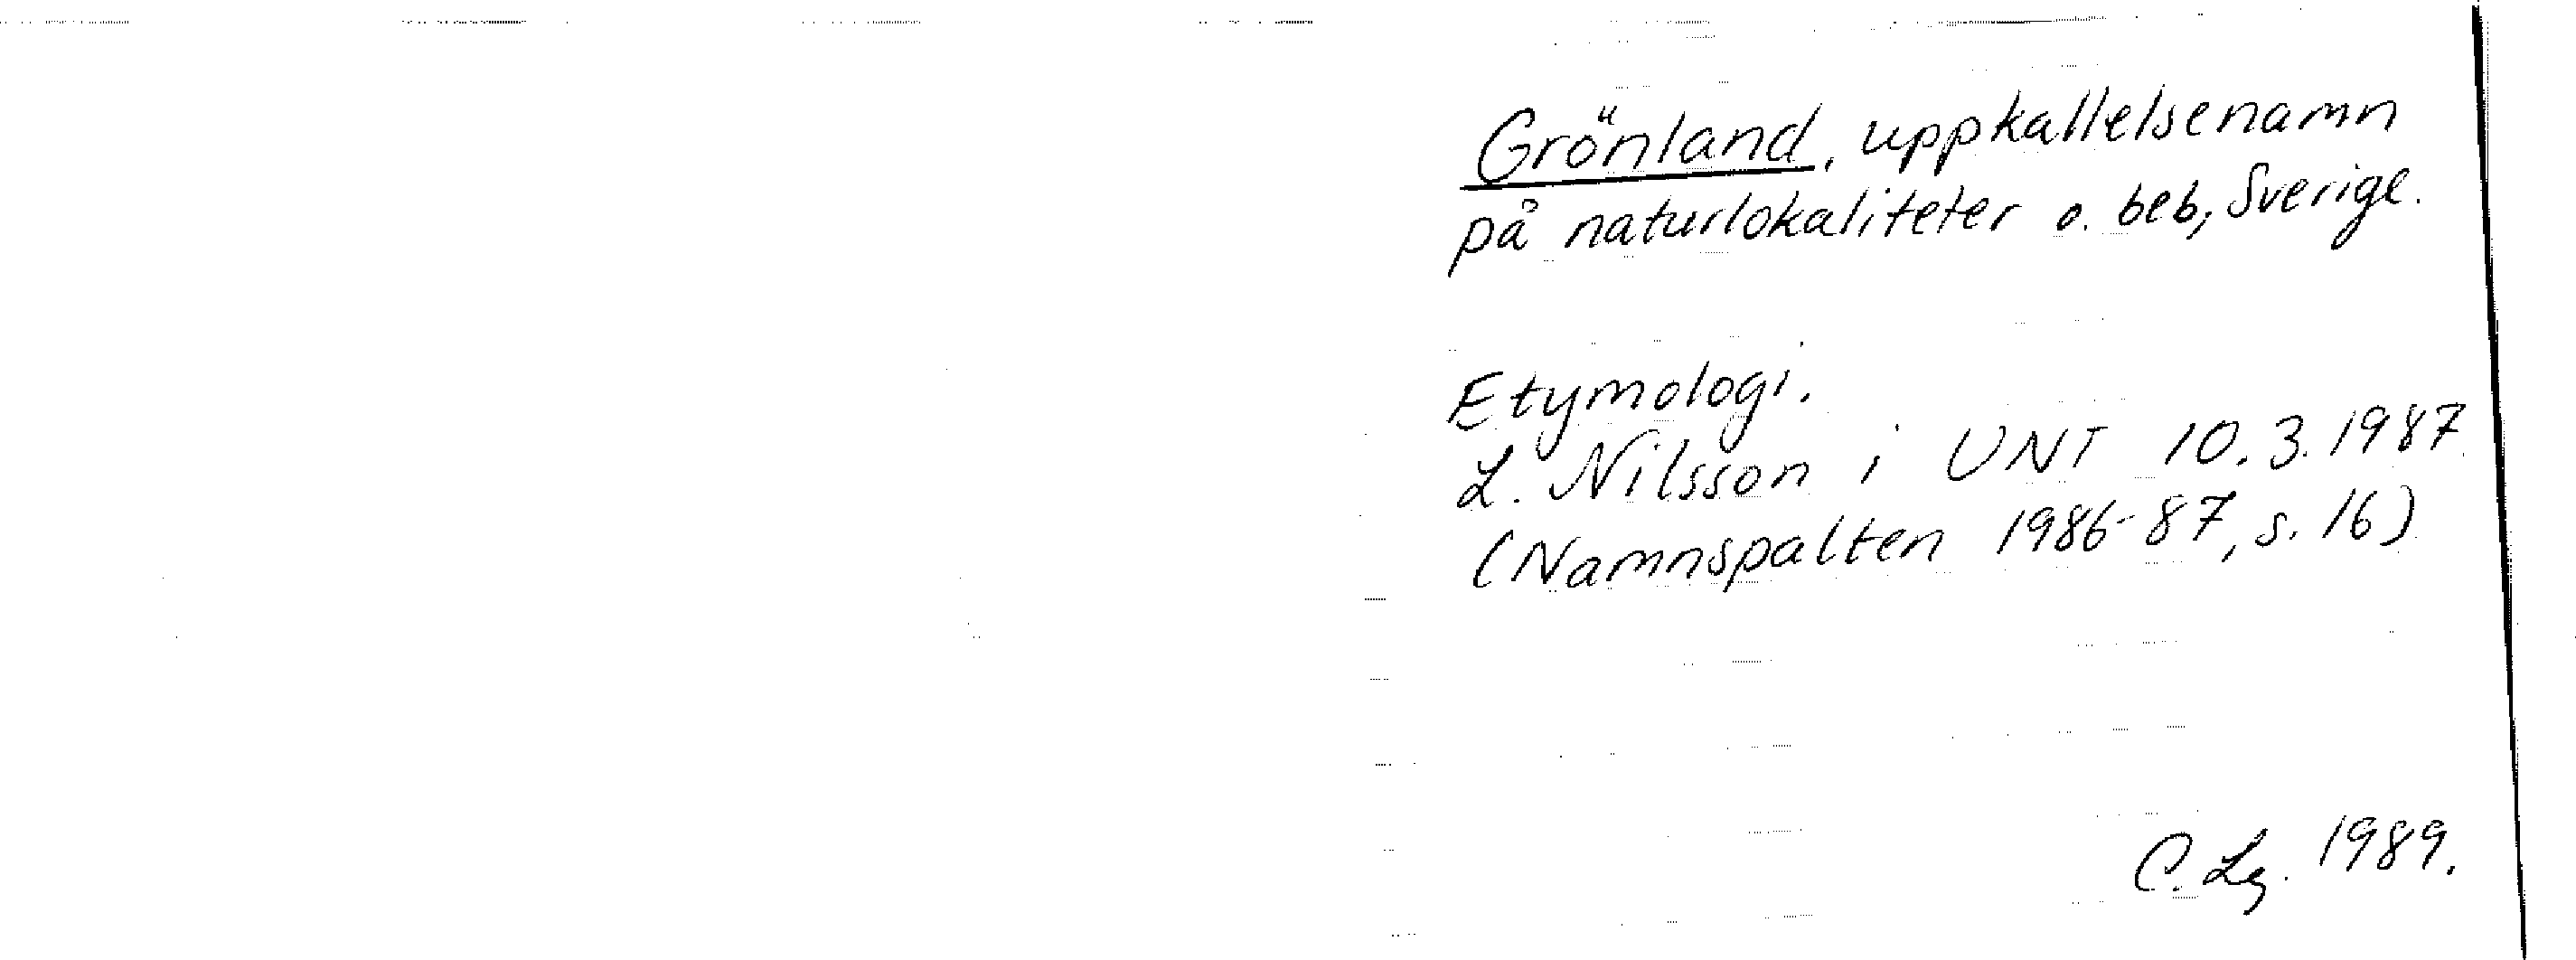 Grönland, uppkallelsenamn
på naturlokaliteter o. beb, Sverige.
Etymologi.
L. Nilsson i UNT 10.3.1987
(Namnspalten 1986-87, s. 16)
C. Lg. 1989.